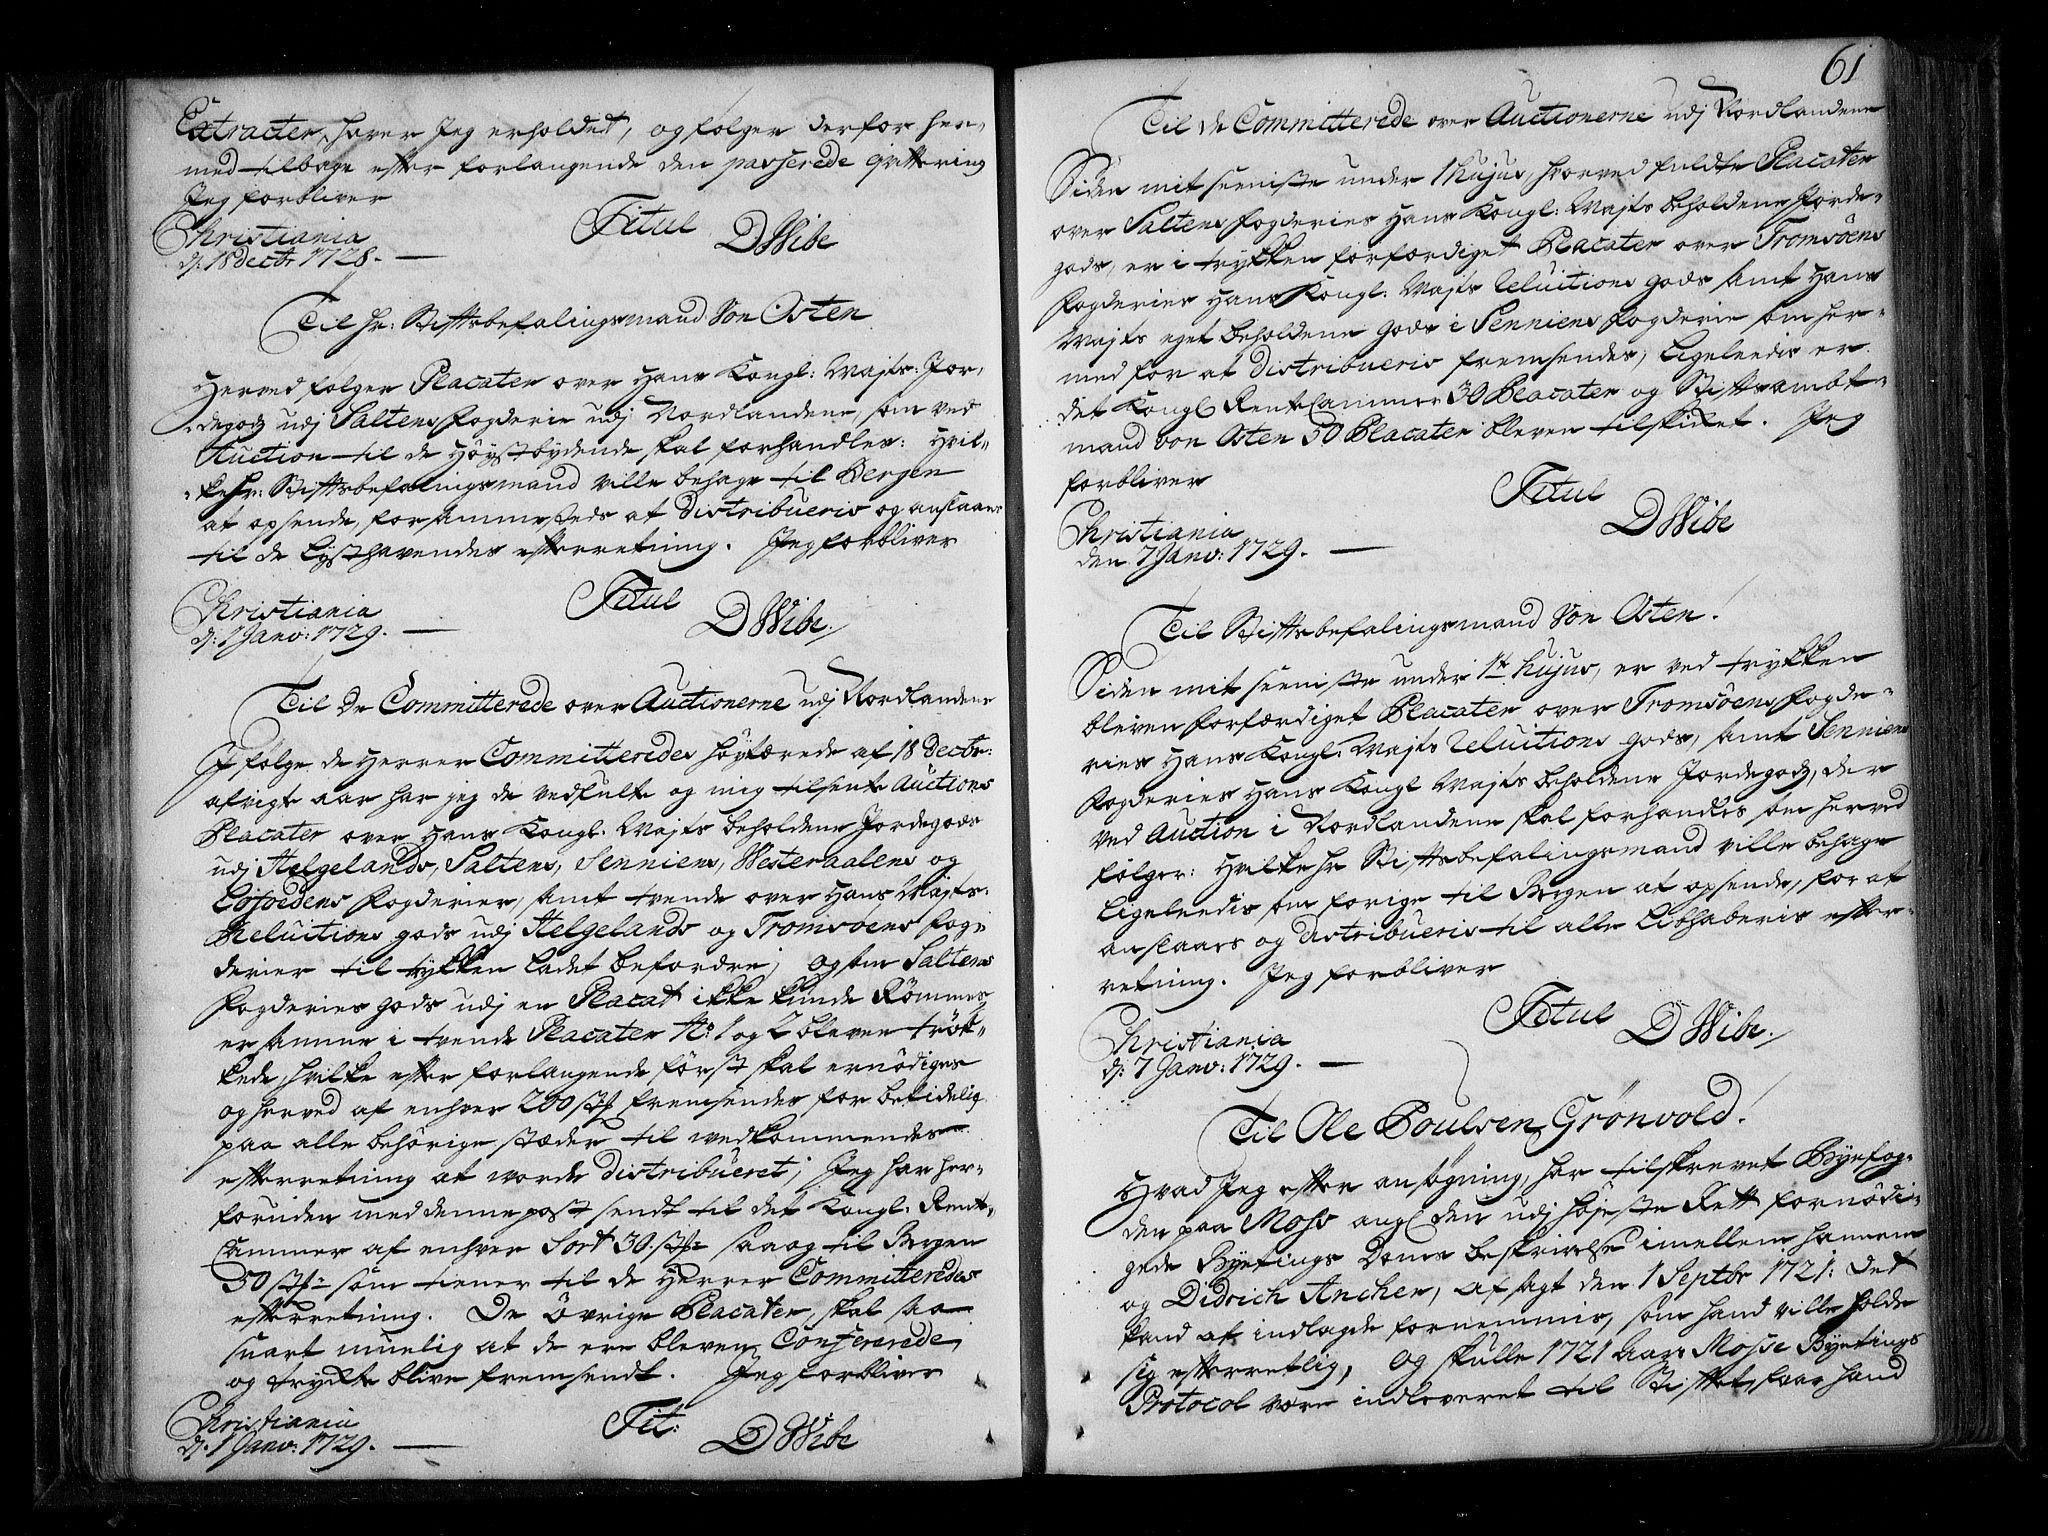 Extracter, harer Jeg erholdet, og følger derfor her-
med tilbage efter forlangende den passerede qvittering
Jeg forbliver
Christiania
d: 18 decbr 1728.
Titul
DWibe
Til Hr: Stiftsbefalingsmand Von Osten
Herved følger Placater over Hans Kongl: Majts: Jor-
degodz udj Saltens Fogderie udj Nordlandene, som ved
Auction til de Høystbydende skal forhandles: Hvil-
ke Hr: Stiftsbefalingsmand ville behage til Bergen
at opsende, for sammesteds at distribueris og anslaaes
til de Lysthavendes efterretning. Jeg forbliver
Christiania
d: 1 Janv: 1729.
Titul
DWibe.
Til De Committerede over Auctionerne udj Nordlandene
J følge de Herrer Committeredes høytærede af 18 decbr:
afvigte aar har jeg de vedfulte og mig tilsente Auctions
Placater over Hans Kongl: Majts beholdene Jordegods
udj Helgelands, Saltens, Senniens, Westeraalens og
Lofoedens Fogderier, samt tvende over Hans Majts:
Reluitions gods udj Helgelands og Tromsøens Fog-
derier til tykken ladet befordre; og som Saltens
Fogderies gods udj en Placat ikke kunde Rømmes
er samme i tvende Placater No: 1 og 2 bleven trøk-
kede, hvilke efter forlangende først skal ernødiges
og herved af enhver 200 st: fremsendes for betidelig
paa alle behørige stæder til wedkommendes
efterretning at worde distribueret; Jeg har her-
foruden med denne post sendt til det Kongl: Rente-
Cammer af enhver Sort 30. st: saa og til Bergen
50 st: som tiener til de Herrer Committeredes
efterretning. De Øvrige Placater, skal saa
snart muelig at de ere bleven Confererede,
og trykte blive fremsendt. Jeg forbliver
Christiania
d: 1 Janv: 1729.
Tit:
DWibe
61
Til de Committerede over Auctionerne udj Nordlandene
Siden mit seeniste under 1 hujus, hvorved fuldte Placater
over Saltens Fogderies Hans Kongl: Majts beholdene Jorde-
gods, er i trykken forfærdiget Placater over Tromsøens
Fogderies Hans Kongl: Majts Reluitions gods samt Hans
Majts eget beholdene Gods i Senniens Fogderie som her-
med for at distribueris fremsendes, Ligeleedis er
det Kongl Rente Cammer 30 Placater og Stiftsambt-
mand von Osten 50 Placater bleven tilskicket. Jeg
forbliver
Titul
Christiania
den 7 Janv: 1729.
DWibe
Til Stiftsbefalingsmand Von Osten.
Siden mit seeniste under 1te hujus, er ved trykken
bleven forfærdiget Placater over Tromsøens Fogde-
ries Hans Kongl: Majts Reluitions gods, samt Senniens
Fogderies Hans Kongl Majts beholdene Jordegodz, der
ved Auction i Nordlandene skal forhandles som herved
følger: Hvilke Hr Stiftsbefalingsmand ville behage
Ligeleedis som forige til Bergen at opsende, for at
anslaaes og distribueris til alle Liebhaberis efter-
retning. Jeg forbliver
Titul
Christiania
d: 7 Janv: 1729.
DWibe.
Til Ole Poulsen Grønvold.
Hvad Jeg efter ansøgning, har tilskrevet Byefog-
den paa Moss ang: den udj høyeste Rett fornødi-
gede Byetings Doms beskrivelse imellem hannem
og Didrich Ancher, afsagt den 1 Septbr 1721: Det
kand af indlagde fornemmis, som hand ville holde
sig efterretlig, og skulle 1721 Aars Mosse Byetings
Protocol være indleveret til Stiftet, faar hand